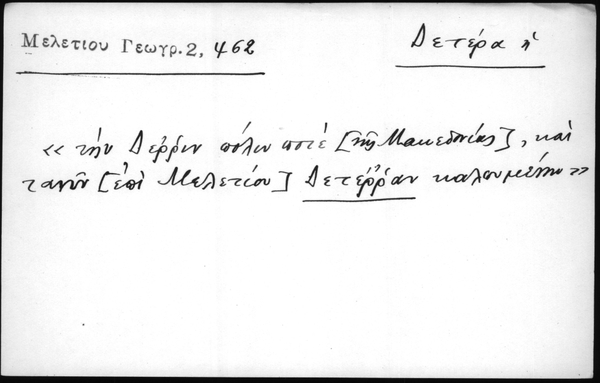 Μελετίου Γεωγρ. 2, 462
Δετέρα ἡ
«τὴν Δέρριν πόλιν ποτέ [τῆς Μακεδονίας], καὶ
τανῦν [ἐπὶ Μελετίου] Δετέρραν καλουμένην»